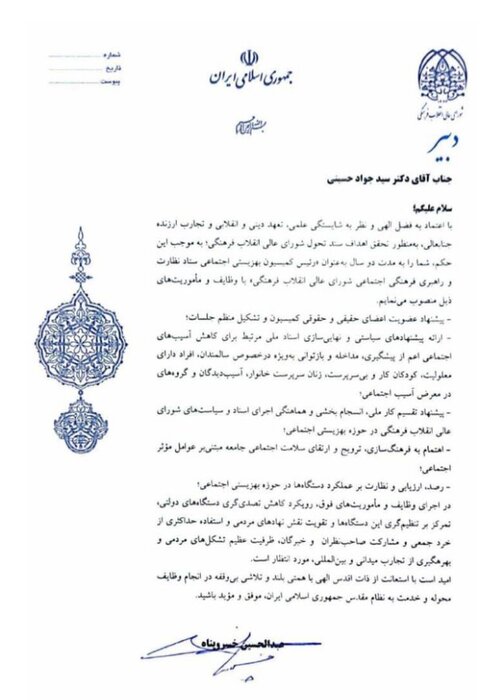 شماره
تاریخ
پیوست
جمهوری اسلامی ایران
شورای عالی انقلاب فرهنگی
دبیر
جناب آقای دکتر سید جواد حسینی
سلام علیکم!
با اعتماد به فضل الهی و نظر به شایستگی علمی، تعهد دینی و انقلابی و تجارب ارزنده
جنابعالی، به‌منظور تحقق اهداف سند تحول شورای عالی انقلاب فرهنگی؛ به موجب این
حکم، شما را به مدت دو سال به‌عنوان «رئیس کمیسیون بهزیستی اجتماعی ستاد نظارت
و راهبری فرهنگی اجتماعی شورای عالی انقلاب فرهنگی» با وظایف و مأموریت‌های
ذیل منصوب می‌نمایم.
- پیشنهاد عضویت اعضای حقیقی و حقوقی کمیسیون و تشکیل منظم جلسات؛
- ارائه پیشنهادهای سیاستی و نهایی‌سازی اسناد ملی مرتبط برای کاهش آسیب‌های
اجتماعی اعم از پیشگیری، مداخله و بازتوانی به‌ویژه درخصوص سالمندان، افراد دارای
معلولیت، کودکان کار و بی‌سرپرست، زنان سرپرست خانوار، آسیب‌دیدگان و گروه‌های
در معرض آسیب اجتماعی؛
- پیشنهاد تقسیم کار ملی، انسجام بخشی و هماهنگی اجرای اسناد و سیاست‌های شورای
عالی انقلاب فرهنگی در حوزه بهزیستی اجتماعی؛
- اهتمام به فرهنگ‌سازی، ترویج و ارتقای سلامت اجتماعی جامعه مبتنی‌بر عوامل مؤثر
اجتماعی؛
- رصد، ارزیابی و نظارت بر عملکرد دستگاه‌ها در حوزه بهزیستی اجتماعی؛
در اجرای وظایف و مأموریت‌های فوق، رویکرد کاهش تصدی‌گری دستگاه‌های دولتی،
تمرکز بر تنظیم‌گری این دستگاه‌ها و تقویت نقش نهادهای مردمی و استفاده حداکثری از
خرد جمعی و مشارکت صاحب‌نظران و خبرگان، ظرفیت عظیم تشکل‌های مردمی و
بهره‌گیری از تجارب میدانی و بین‌المللی، مورد انتظار است.
امید است با استعانت از ذات اقدس الهی با همتی بلند و تلاشی بی‌وقفه در انجام وظایف
محوله و خدمت به نظام مقدس جمهوری اسلامی ایران، موفق و مؤید باشید.
عبدالحسین خسروپناه